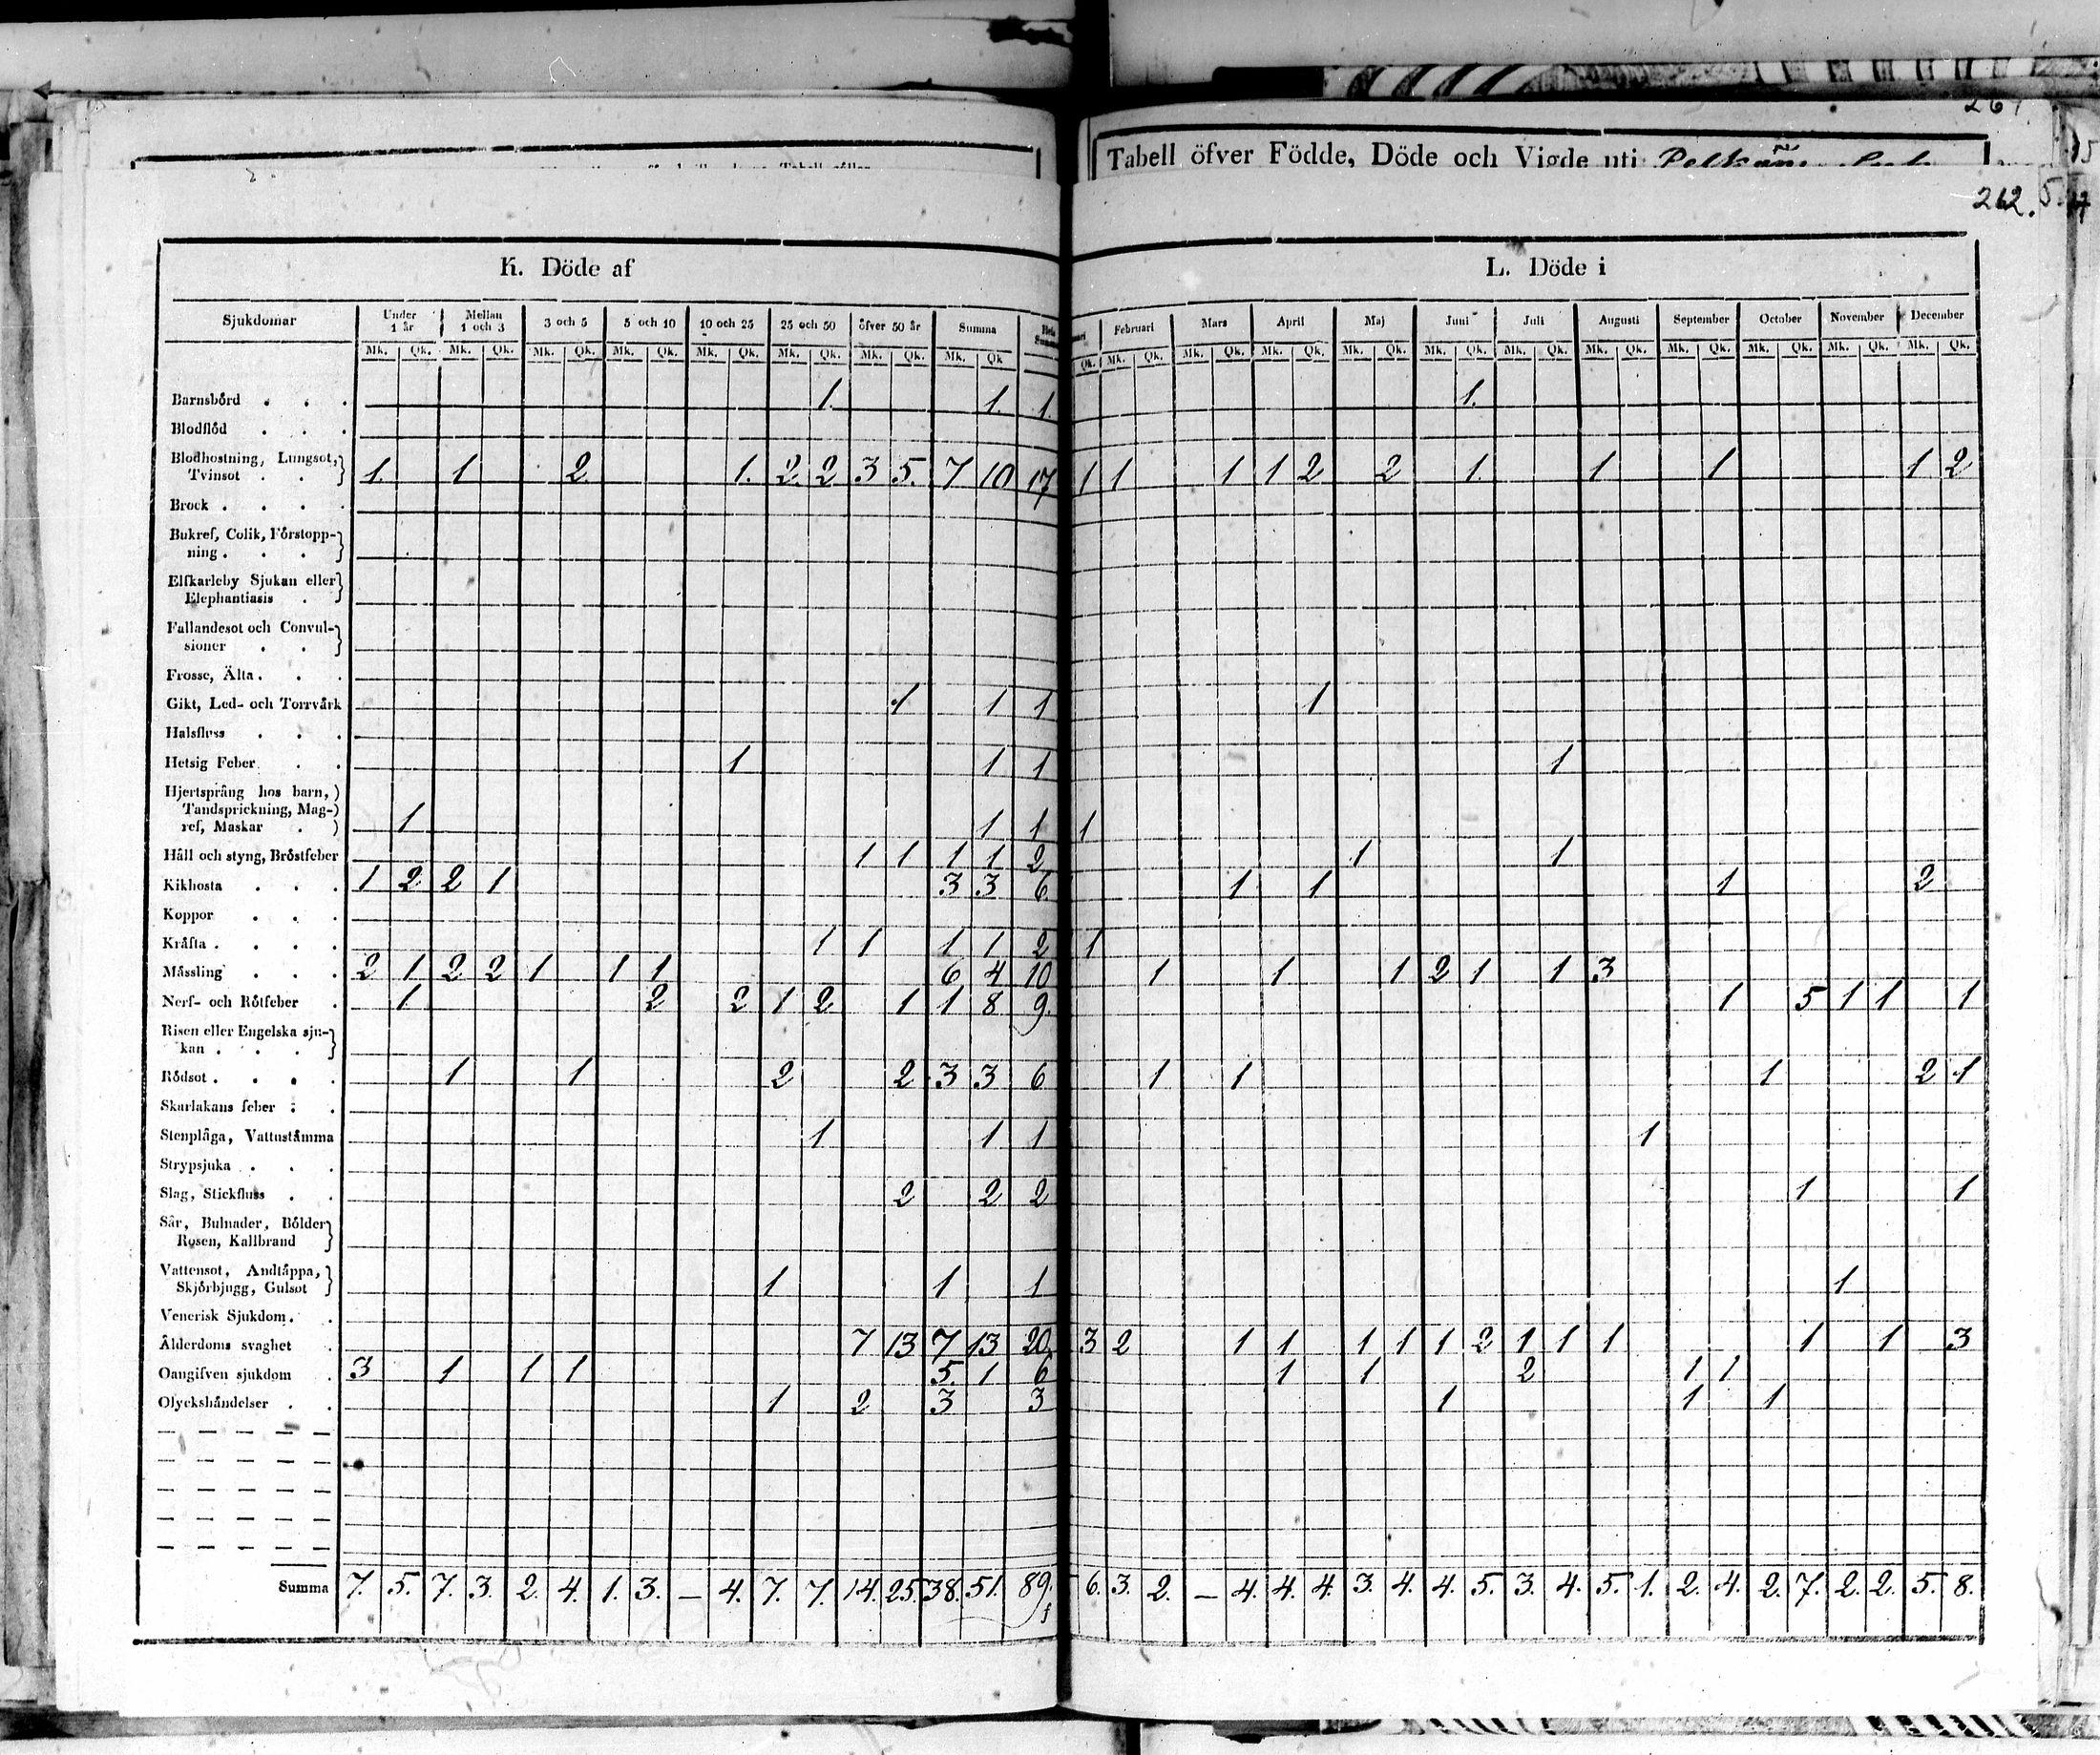 267.
Tabell öfver Födde, Döde och Vigde uti
15
262. 5.
K. Döde af L. Döde i
Sjukdomar Under 1 år Mellan 1 och 3 3 och 5 5 och 10 10 och 25 25 och 50 öfver 50 år Summa Hela Summa Februari Mars April Maj Juni Juli Augusti September October November December
Mk. Qk. Mk. Qk. Mk. Qk. Mk. Qk. Mk. Qk. Mk. Qk. Mk. Qk. Mk. Qk Qk. Mk. Qk. Mk. Qk. Mk. Qk. Mk. Qk. Mk. Qk. Mk. Qk. Mk. Qk. Mk. Qk. Mk. Qk. Mk. Qk. Mk. Qk.
Barnsbörd . . . 1. 1. 1. 1.
Blodflöd . . .
Blodhostning, Lungsot,
Tvinsot . . 1. 1 2. 1. 2. 2 3 5. 7 10 17 1 1 1 1 2 2 1. 1 1 1 2
Brock . . . .
Bukref, Colik, Förstopp-
ning . . .
Elfkarleby Sjukan eller
Elephantiasis .
Fallandesot och Convul-
sioner . .
Frosse, Älta . . .
Gikt, Led- och Torrvärk 1 1 1 1
Halsfluss . . .
Hetsig Feber . . 1 1 1 1
Hjertsprång hos barn,
Tandsprickning, Mag-
ref, Maskar . 1 1 1 1
Håll och styng, Bröstfeber 1 1 1 1 2 1 1
Kikhosta . . . 1 2 2 1 3 3 6. 1 1 1 2
Koppor . . .
Kräfta . . . . 1 1 1 1 2 1
Mässling . . . 2 1 2 2 1 1 1 6 4 10 1 1 1 2 1 1 3
Nerf- och Rötfeber . 1 2 2 1 2 1 1 8 9. 1 5 1 1 1
Risen eller Engelska sju-
kan . . .
Rödsot . . . . 1 1 2 2 3 3 6 1 1 1 2 1
Skarlakans feber . .
Stenplåga, Vattustämma 1 1 1 1
Strypsjuka . . .
Slag, Stickfluss . . 2 2 2 1 1
Sår, Bulnader, Bölder
Rosen, Kallbrand
Vattensot, Andtäppa,
Skjörbjugg, Gulsot 1 1 1 1
Venerisk Sjukdom . .
Ålderdoms svaghet . 7 13 7 13 20 3 2 1 1 1 1 1 2 1 1 1 1 1 3
Oangifven sjukdom . 3 1 1 1 5. 1 6 1 1 2 1 1
Olyckshändelser . . 1 2 3 3 1 1 1
Summa 7. 5. 7. 3. 2. 4. 1. 3. — 4. 7. 7. 14. 25. 38. 51. 89. 6. 3. 2. — 4. 4. 4. 3. 4. 4. 5. 3. 4. 5. 1. 2. 4. 2. 7. 2. 2. 5. 8.